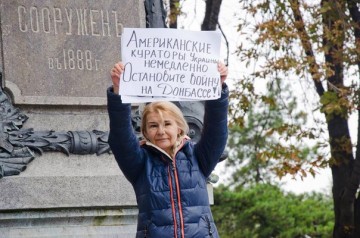 СООРУЖЕНЪ
въ 1888 г.
АМЕРИКАНСКИЕ
КУРАТОРЫ УКРАИНЫ
НЕМЕДЛЕННО
ОСТАНОВИТЕ ВОЙНУ
НА ДОНБАССЕ!